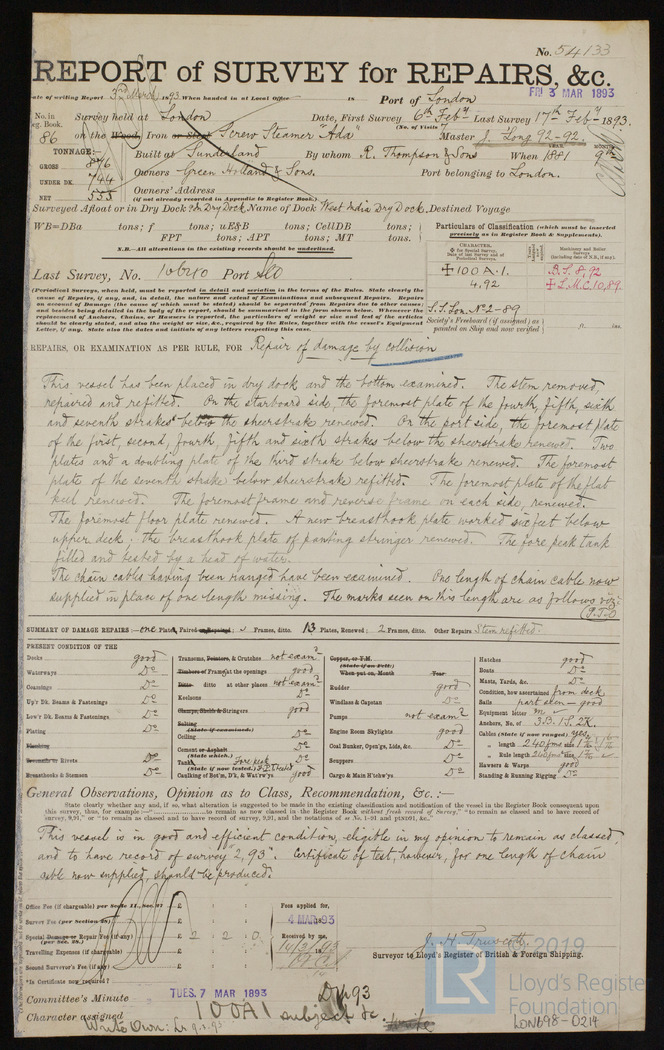 No. 54133
REPORT of SURVEY for REPAIRS, &c.
Date of writing Report 3rd March 1893 When handed in at Local Office 18 Port of London
FRI 3 MAR 1893
No. in Reg. Book. 86 Survey held at London Date, First Survey 6th Feby Last Survey 17th Feby 1893.
(No. of Visits)
on the Wood, Iron or Steel Screw Steamer "Ada" Master J. Long 92-92.
TONNAGE:
GROSS 846
UNDER DK. 744
NET 535
Built at Sunderland By whom R. Thompson & Sons When 1881 9th
YEAR. MONTH.
Owners Green Holland & Sons. Port belonging to London.
Owners' Address
(if not already recorded in Appendix to Register Book.)
Surveyed Afloat or in Dry Dock? In Dry Dock Name of Dock West India Dry Dock. Destined Voyage
WB=DBa tons; f tons; uE&B tons; CellDB tons;
FPT tons; APT tons; MT tons.
N.B.—All alterations in the existing records should be underlined.
Particulars of Classification (which must be inserted precisely as in Register Book & Supplements).
CHARACTER.
Machinery and Boiler Surveys (including date of N.B., if any).
✠ 100 A.1.
4.92
B.S. 8,92
✠ L.M.C. 10,89.
S.S. Lon. No 2-89
Society's Freeboard (if assigned) as painted on Ship and now verified ft. ins.
Last Survey, No. Port
(Periodical Surveys, when held, must be reported in detail and seriatim in the terms of the Rules. State clearly the
cause of Repairs, if any, and, in detail, the nature and extent of Examinations and subsequent Repairs. Repairs
on account of Damage (the cause of which must be stated) should be separated from Repairs due to other causes;
and besides being detailed in the body of the report, should be summarised in the form shewn below. Whenever the
replacement of Anchors, Chains, or Hawsers is reported, the particulars of weight or size and test of the articles
should be clearly stated, and also the weight or size, &c., required by the Rules, together with the vessel's Equipment
Letter, if any. State also the dates and initials of any letters respecting this case.
REPAIRS, OR EXAMINATION AS PER RULE, FOR Repair of damage by collision
This vessel has been placed in dry dock and the bottom examined. The stem removed,
repaired and refitted. On the starboard side, the foremost plate of the fourth, fifth, sixth
and seventh strakes below the sheerstrake renewed. On the port side, the foremost plate
of the first, second, fourth, fifth and sixth strakes below the sheerstrake renewed. Two
plates and a doubling plate of the third strake below sheerstrake renewed. The foremost
plate of the seventh strake below sheerstrake refitted. The foremost plate of the flat
keel renewed. The foremost frame and reverse frame on each side, renewed.
The foremost floor plate renewed. A new breasthook plate worked six feet below
upper deck; the breasthook plate of panting stringer renewed. The fore peak tank
filled and tested by a head of water.
The chain cables having been ranged have been examined. One length of chain cable now
supplied in place of one length missing. The marks seen on this length are as follows viz:
(P.T.O)
SUMMARY OF DAMAGE REPAIRS:—one Plate, Faired or Repaired; Frames, ditto. 13 Plates, Renewed; 2 Frames, ditto. Other Repairs Stem refitted.
PRESENT CONDITION OF THE
Decks good
Waterways Do
Coamings Do
Up'r Dk. Beams & Fastenings Do
Low'r Dk. Beams & Fastenings Do
Plating Do
Planking
Treenails or Rivets Do
Breasthooks & Stemson Do
Transoms, Pointers, & Crutches not examd
Timbers of Frame at the openings good
Ditto ditto at other places not examd
Keelsons Do
Clamps, Shelfs & Stringers good
Salting (State if examined)
Ceiling Do
Cement or Asphalt (State which.) Do
Tanks (State if now tested.) Fore peak
Caulking of Bot'm, D'k, & Wat'rw'ys good
Copper, or Y.M. (State if on Felt)
When put on, Month Year
Rudder good
Windlass & Capstan Do
Pumps not examd
Engine Room Skylights good
Coal Bunker, Open'gs, Lids, &c. Do
Scuppers Do
Cargo & Main H'tchw'ys Do
Hatches good
Boats Do
Masts, Yards, &c. Do
Condition, how ascertained from deck
Sails part seen - good
Equipment letter m
Anchors, No. of 3.B. 1 S. 2 K.
Cables (State if now ranged) yes
" length 240 fms size 1 7/16
" Rule length 240 fms size 1 7/16
Hawsers & Warps good
Standing & Running Rigging Do
General Observations, Opinion as to Class, Recommendation, &c.:—
State clearly whether any and, if so, what alteration is suggested to be made in the existing classification and notification of the vessel in the Register Book consequent upon
this survey, thus, for example—" to remain as now classed in the Register Book without fresh record of Survey," "to remain as classed and to have record of
survey, 9,91," or "to remain as classed and to have record of survey, 9,91, and the notations of
This vessel is in good and efficient condition, eligible in my opinion to remain as classed,
and to have record of survey "2,93". Certificate of test, however, for one length of chain
cable now supplied, should be produced.
Office Fee (if chargeable) per Scale 11., Sec. 27 £
Survey Fee (per Section 28) £
Special Damage or Repair Fee (if any) (per Sec. 28.) £ 2 2 0
Travelling Expenses (if chargeable) £
Second Surveyor's Fee (if any) £
Fees applied for,
4 MAR 93
Received by me,
14/3/93
*Is Certificate now required?
J. H. Truscott
Surveyor to Lloyd's Register of British & Foreign Shipping.
Committee's Minute TUES. 7 MAR 1893
Character assigned 100A1 subject &c.
Write Own:
© 2019
LR
Lloyd's Register
Foundation
LON698-0214